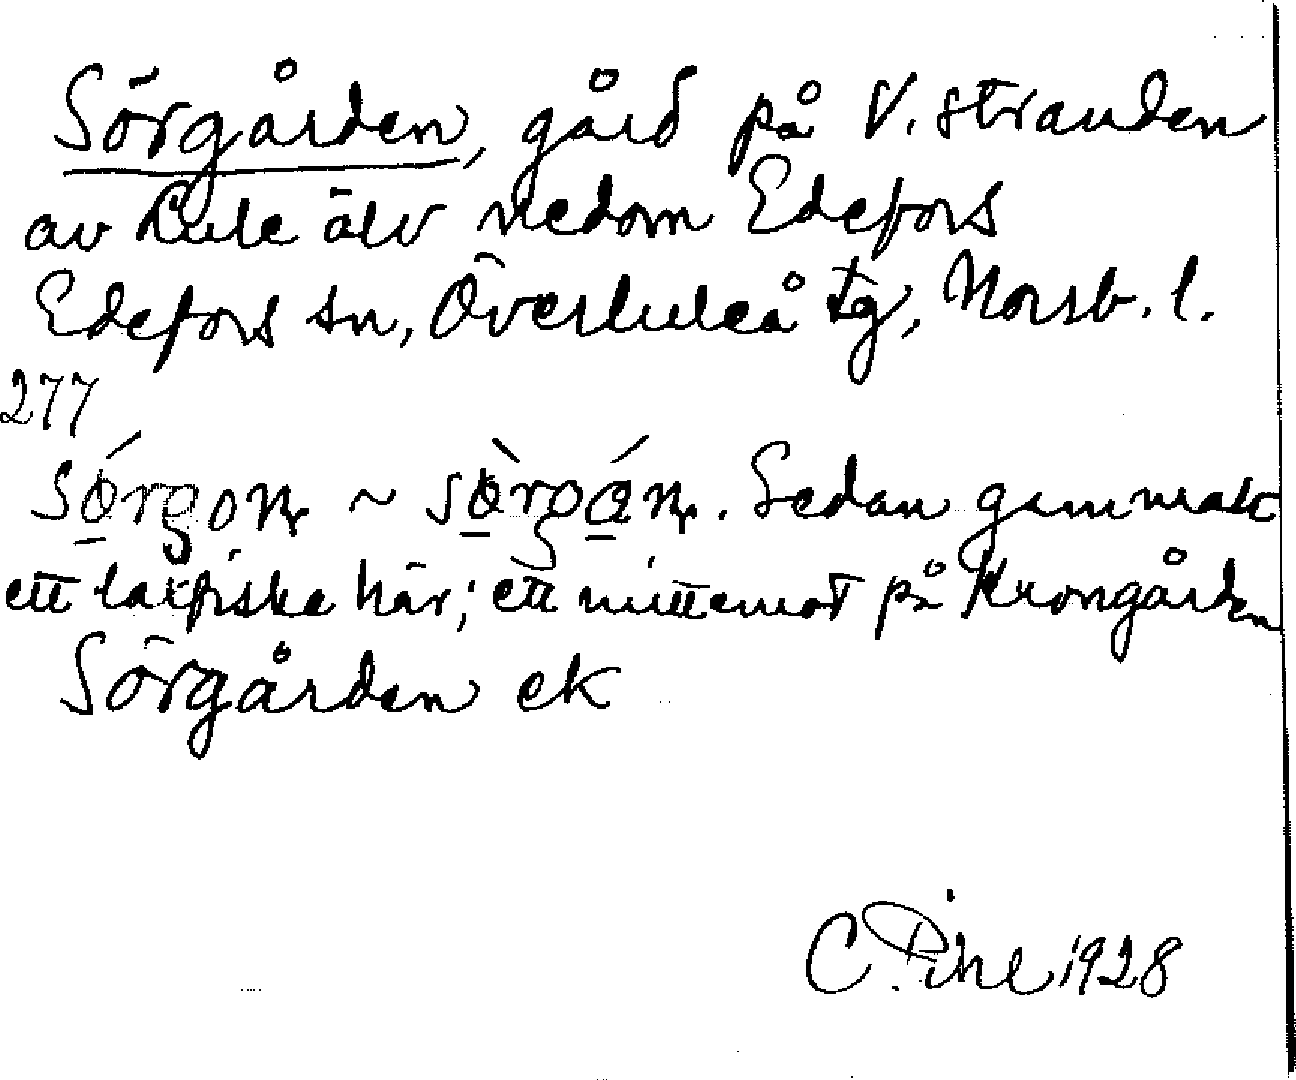 Sörgården, gård på V. stranden
av Lule älv nedom Edefors
Edefors sn, Överluleå tg, Norrb. l.
277
Sedan gammalt
ett laxfiske här; ett mittemot på Krongården
Sörgården ek
C. Pihl 1928